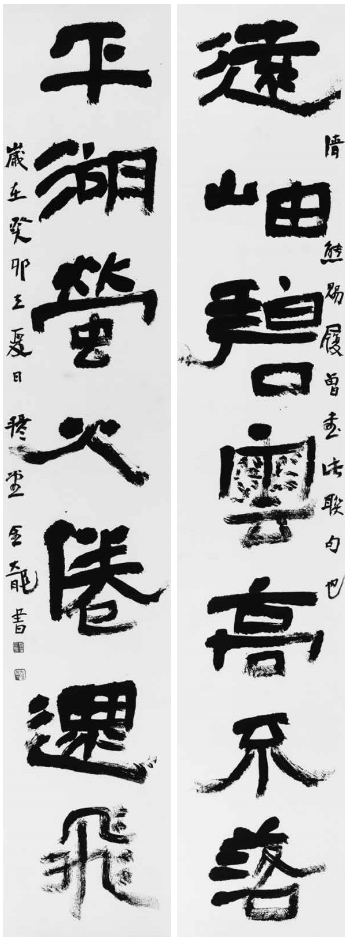 遠岫碧雲高不落
清熊賜履曾書此聯句也
平湖螢火倦還飛
歲在癸卯立夏日 金龍書